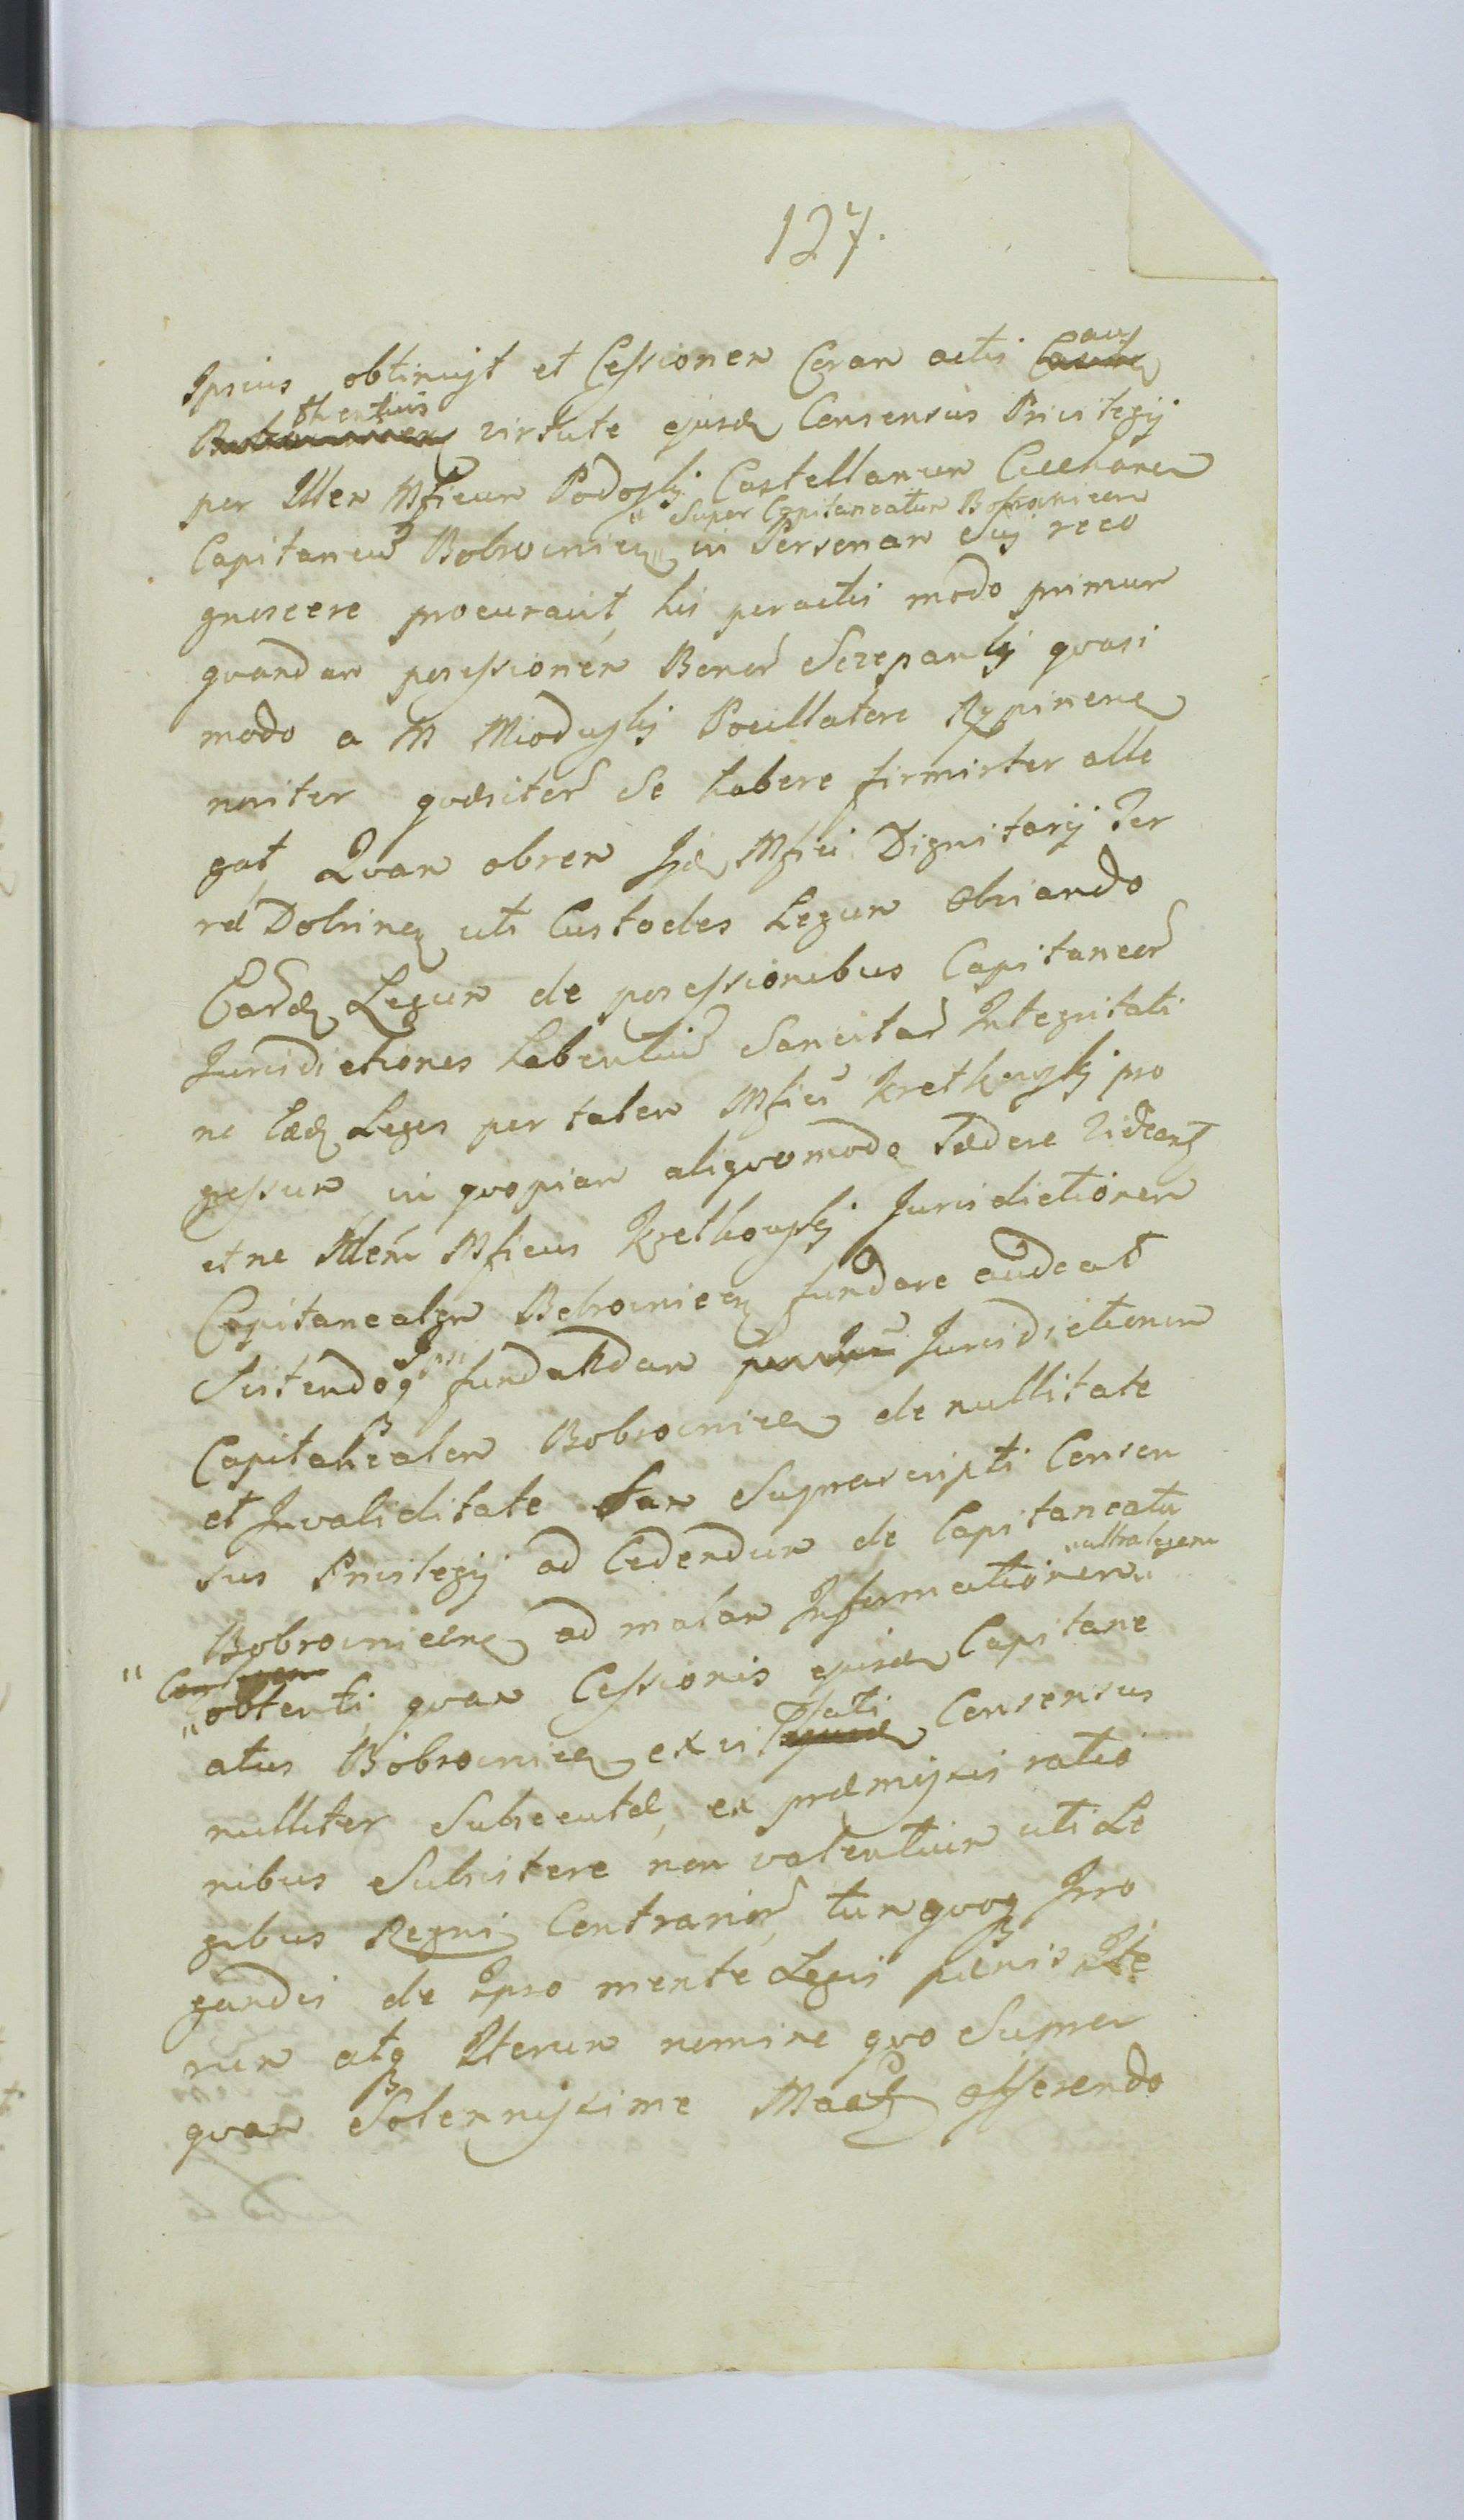 127.
Ipsius obtinuit et Cessionem Coram actis au
thentius virtute ejusd Consensus Privilegij
per Illem Mficum Podoski Castellanum Ciechanen
Capitaneum Bobrownicen in Personam Suj reco
" Super Capitaneatum Bobrownicen
gnoscere procuravit, his peractis modo primum
quandam possessionem Bonor Szczepanki quasi
modo a M Mioduski Pocillatore Rypinen
noviter quaesitor Se habere firmiter alle
gat, Quam obrem Iid Mfici Dignitarij Ter
rae Dobrinen uti Custodes Legum Obviando
Eard Legum de possessionibus Capitaneor
Jurisdictiones habentium Sancitar Integritati
ne Eaed Leges per talem Mfici Kretkowski pro
gressum in quopiam aliquomodo laedere Videant
et ne Idem Mficus Kretkowski Jurisdictionem
Capitanealem Bobrownicen fundare audeat
Sistendoq Ipsi fundandam Jurisdictionem
Capitanealem Bobrownicen de nullitate
et Invaliditate tam Suprascripti Consen
sus Privilegij ad Cedendum de Capitaneatu
Bobrownicen ad malam Informationem "
" ultra legem
" obtenti, quam Cessionis ejusd Capitane
atus Bobrownicen ex vi Consensus
nulliter Subsecutae, ex praemissis ratio
nibus Subsistere non valentium uti Le
gibus Regni Contrarior, tum quoq Irro
gandis de Ipso mente Legis paenis Ite
rum atq Iterum nomine quo Supra
quam Solennissime offerendo